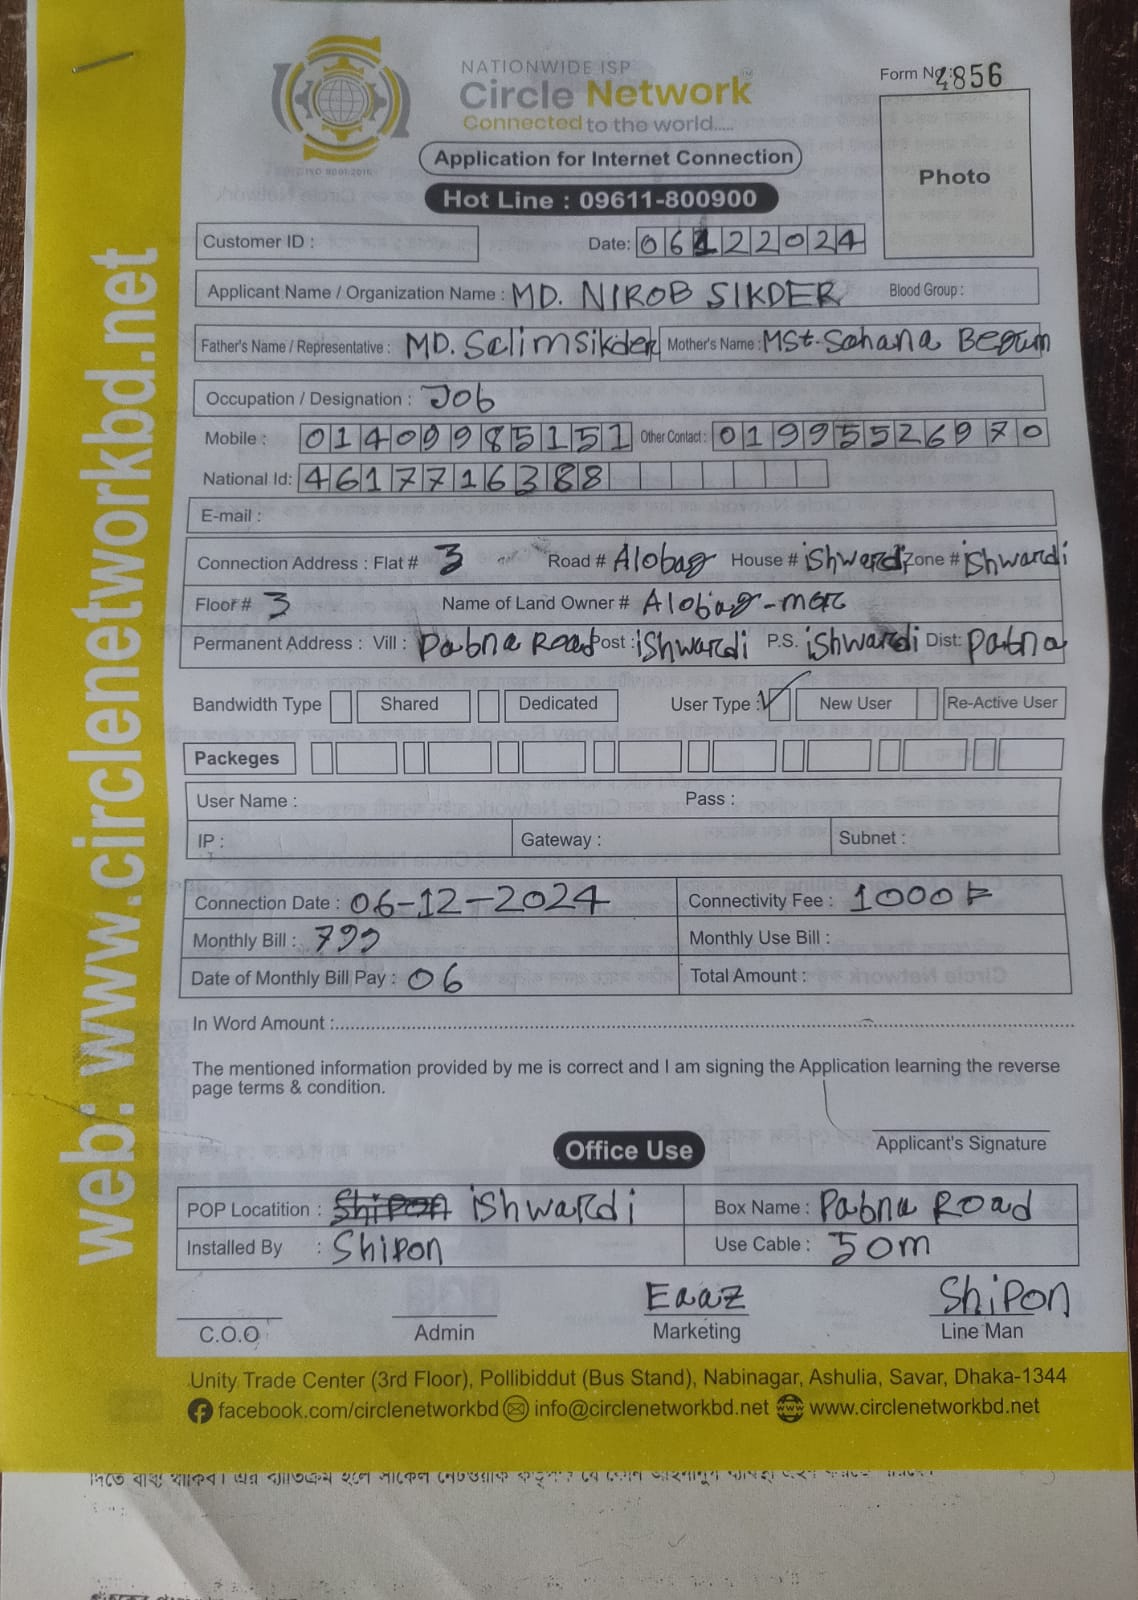 NATIONWIDE ISP
Circle Network
Connected to the world.....
ISO 9001:2015
Form No: 4856
Photo
Application for Internet Connection
Hot Line : 09611-800900
Customer ID :
Date: 06122024
Applicant Name / Organization Name : MD. NIROB SIKDER Blood Group :
Father's Name / Representative : MD. Selim Sikder Mother's Name : MSt. Sahana Begum
Occupation / Designation : Job
Mobile : 01409985151 Other Contact : 01995526970
National Id: 4617716388
E-mail :
Connection Address : Flat # 3 Road # Alobag House # ishwardi Zone # ishwardi
Floor # 3 Name of Land Owner # Alobag-
Permanent Address : Vill : Pabna Road Post : ishwardi P.S. ishwardi Dist: Pabna
Bandwidth Type Shared Dedicated User Type : New User Re-Active User
Packeges
User Name : Pass :
IP : Gateway : Subnet :
Connection Date : 06-12-2024 Connectivity Fee : 1000
Monthly Bill : 799 Monthly Use Bill :
Date of Monthly Bill Pay : 06 Total Amount :
In Word Amount :
The mentioned information provided by me is correct and I am signing the Application learning the reverse
page terms & condition.
Applicant's Signature
Office Use
POP Locatition : Shipon ishwardi Box Name : Pabna Road
Installed By : Shipon Use Cable : 50m
Eaaz Shipon
C.O.O Admin Marketing Line Man
Unity Trade Center (3rd Floor), Pollibiddut (Bus Stand), Nabinagar, Ashulia, Savar, Dhaka-1344
facebook.com/circlenetworkbd info@circlenetworkbd.net www.circlenetworkbd.net
web: www.circlenetworkbd.net